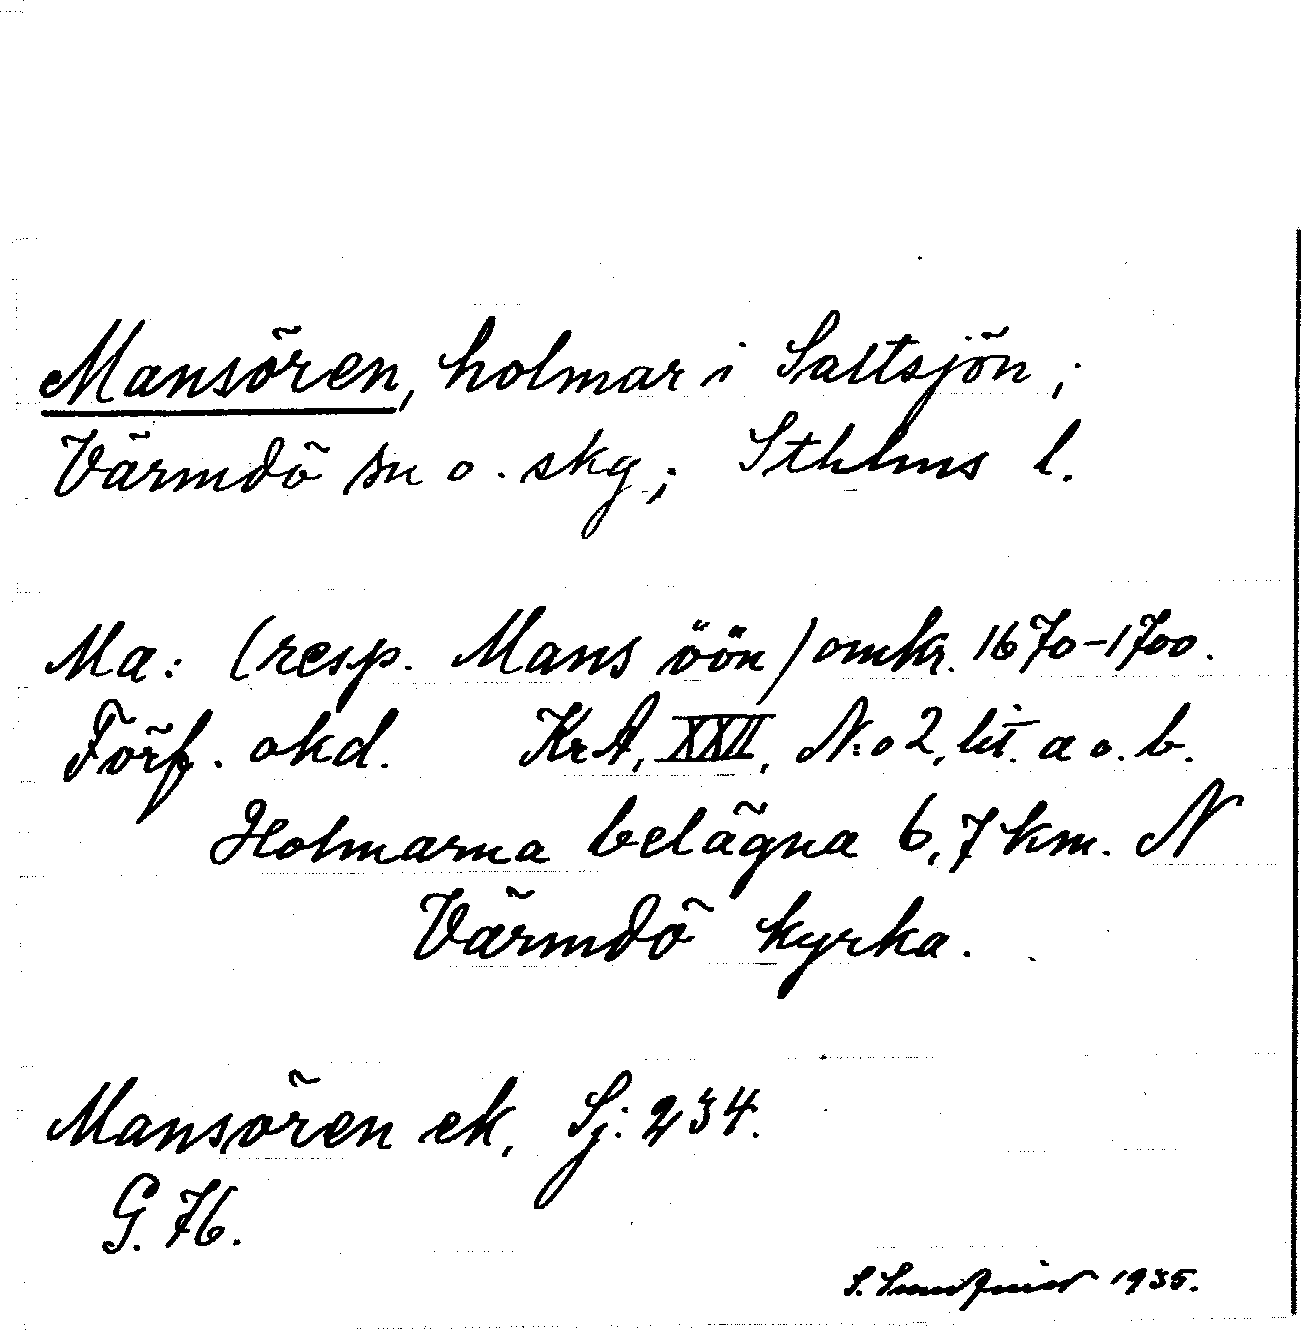 Mansören, holmar i Saltsjön;
Värmdö sn o. skg; Sthlms l.
Ma: (resp. Mans öön) omkr. 1670-1700.
Förf. okd. KrA, XXII, N:o 2, lit. a o. b.
Holmarna belägna 6,7 km. N
Värmdö kyrka.
Mansören ek. Sj: 234.
G. 76.
S. Sundquist 1935.